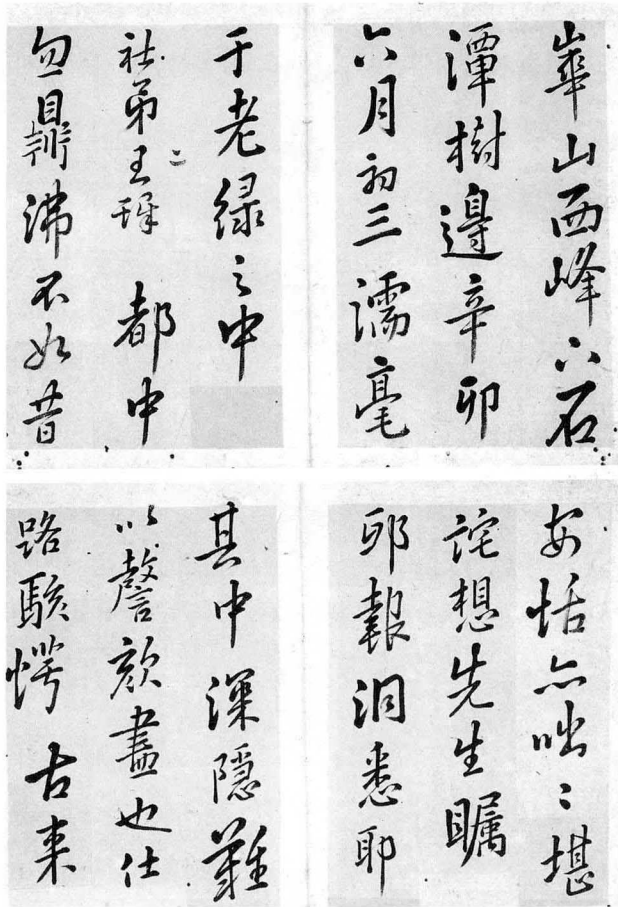 崋山西峰下石
潭樹邊辛卯
六月初三濡毫
于老緑之中
社弟王鐸 都中
沸不如昔
安恬亦咄〻堪
詫想先生矚
邸報洞悉耶
其中深隱難
以謦欬盡也仕
路駭愕古來